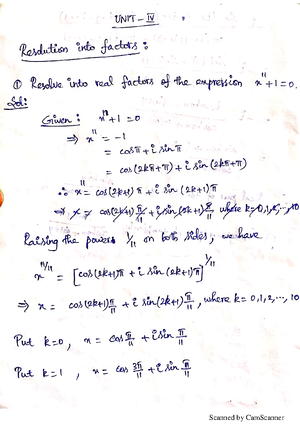 UNIT - IV
Resolution into factors :
① Resolve into real factors of the expression x¹¹+1=0.
Sol:
Given : x¹¹+1=0
⇒ x¹¹ = -1
= cosπ + i sinπ
= cos(2kπ+π) + i sin(2kπ+π)
∴ x¹¹ = cos(2k+1)π + i sin(2k+1)π
⇒ x = cos(2k+1)π/11 + i sin(2k+1)π/11 where k=0,1,2,..., 10
Raising the powers 1/11 on both sides, we have
x^(11/11) = [cos(2k+1)π + i sin(2k+1)π]^(1/11)
⇒ x = cos(2k+1)π/11 + i sin(2k+1)π/11, where k=0,1,2,..., 10
Put k=0, x = cos π/11 + i sin π/11
Put k=1, x = cos 3π/11 + i sin π/11
Scanned by CamScanner